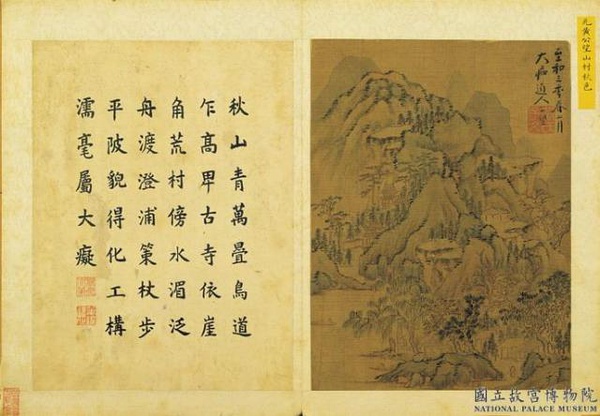 元黃公望山村秋色
大癡道人
秋山青萬疊鳥道
乍髙卑古寺依崖
角荒村傍水湄泛
舟渡澄浦策杖步
平陂貌得化工構
濡毫屬大癡
國立故宮博物院
NATIONAL PALACE MUSEUM